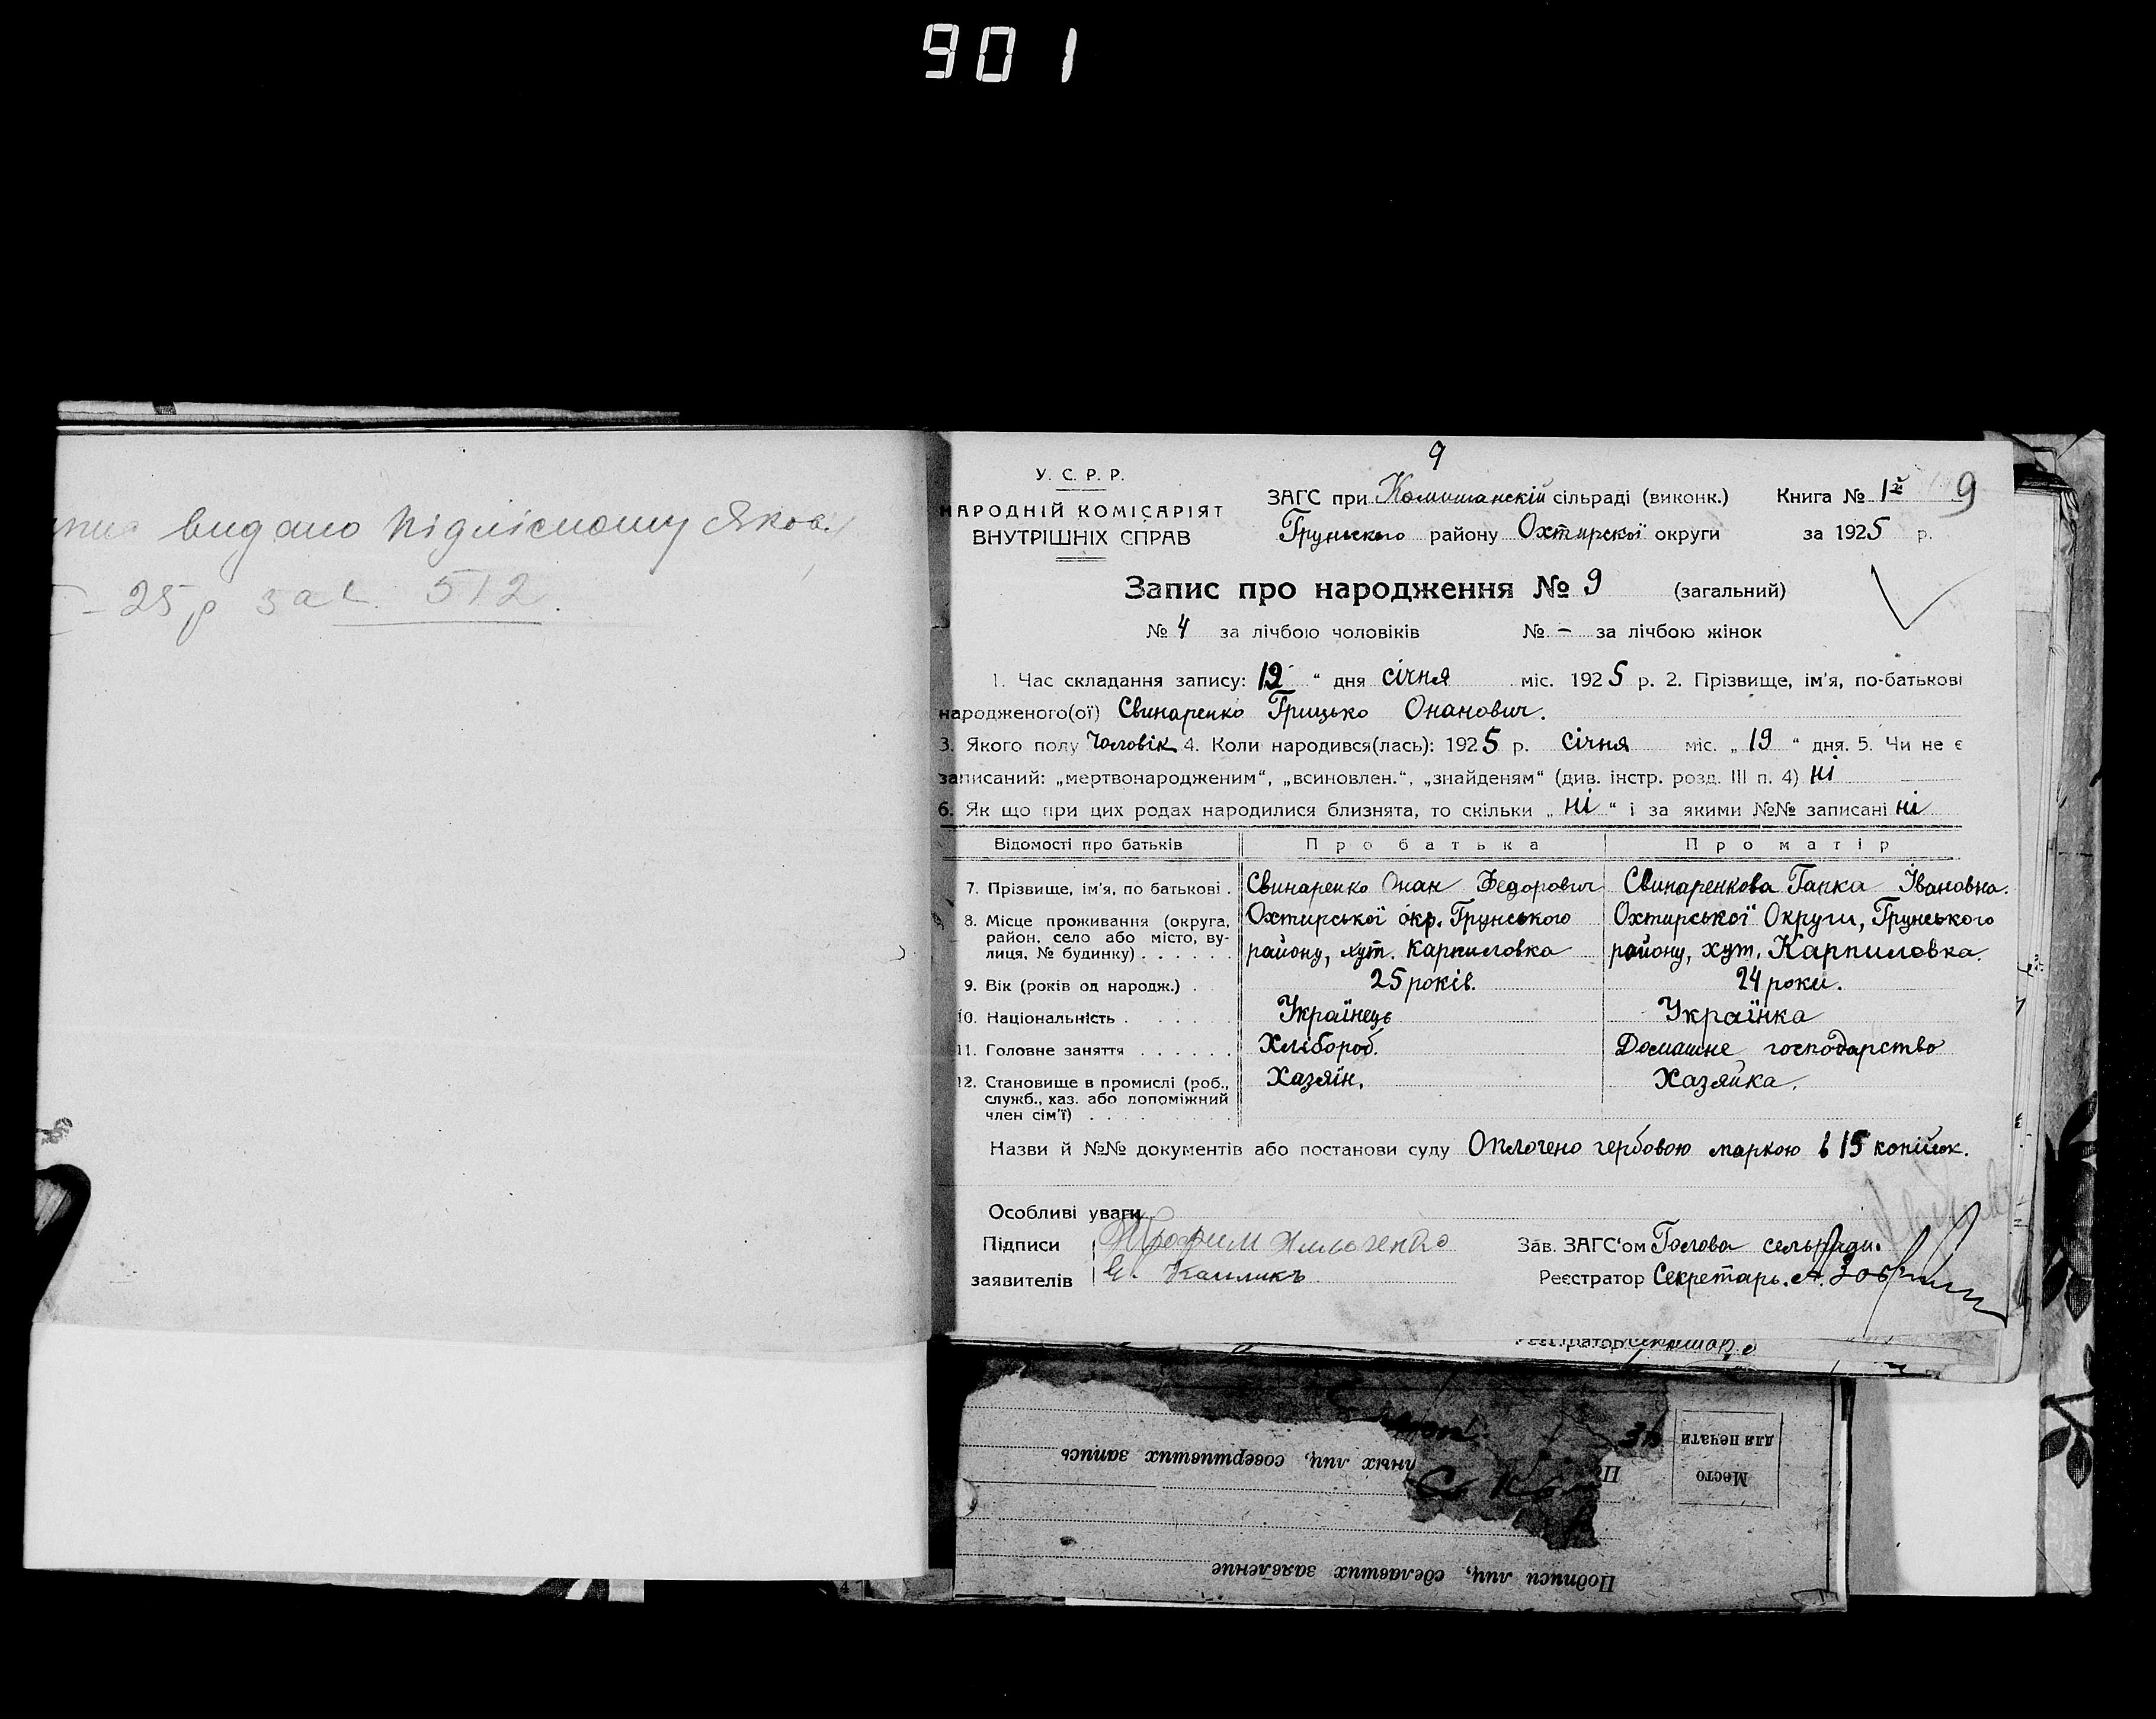 901
видано Підлісному Яков.
- 25 р за № 512.
9
У. С. Р. Р.
НАРОДНІЙ КОМІСАРІЯТ
ВНУТРІШНІХ СПРАВ
ЗАГС при Комишанскій сільраді (виконк.) Книга № 1й 9
Груньского району Охтирскої округи за 1925 р.
Запис про народження № 9 (загальний)
№ 4 за лічбою чоловіків № - за лічбою жінок
1. Час складання запису: 19 " дня січня міс. 1925 р. 2. Прізвище, ім'я, по-батькові
народженого(ої) Свинаренко Грицько Онанович.
3. Якого полу Чоловік 4. Коли народився(лась): 1925 р. січня міс. „ 19 " дня. 5. Чи не є
записаний: „мертвонародженим", „всиновлен.", „знайденям" (див. інстр. розд. III п. 4) ні
6. Як що при цих родах народилися близнята, то скільки „ ні " і за якими №№ записані ні
Відомості про батьків Про батька Про матір
7. Прізвище, ім'я, по батькові . Свинаренко Онан Федорович Свинаренкова Ганка Івановна.
8. Місце проживання (округа, район, село або місто, вулиця, № будинку) . . . . . .
Охтирської окр. Грунського Охтирської Округи, Грунського
району, хут. Карпиловка району, хут. Карпиловка.
9. Вік (років од народж.) . 25 років. 24 роки.
10. Національність . . . . . Українець Українка
11. Головне заняття . . . . . . Хлібороб. Домашне господарство
12. Становище в промислі (роб., служб., хаз. або допоміжний член сім'ї) . . . .
Хазяїн. Хазяйка.
Назви й №№ документів або постанови суду Оплочено гербовою маркою в 15 копійок.
Особливі уваги
Підписи Трофим
заявителів Капликъ
Зав. ЗАГС'ом Голова сельради.
Реєстратор Секретарь. А.
Реєстратор Секретар
Место
для печати
ных лиц, совершивших запись
Подписи лиц, сделавших заявление